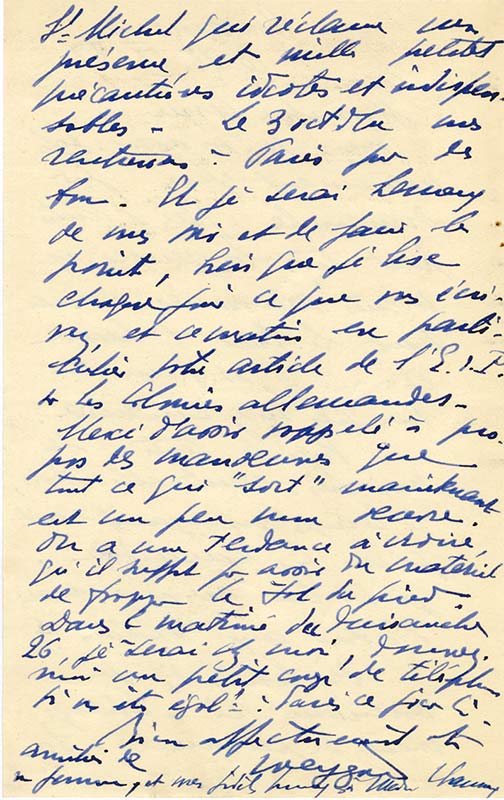 St Michel qui réclame ma
présence, et mille petites
précautions idiotes et indispen-
sables - Le 3 octobre nous
rentrerons à Paris pour de
bon. Et je serai heureux
de vous voir et de faire le
point, bien que je lise
chaque jour ce que vous écri-
vez, et ce matin en parti-
culier votre article de l'E.d.P.
sur les Colonies allemandes -
Merci d'avoir rappelé à pro-
pos des manœuvres que
tout ce qui "sort" maintenant
est un peu mon œuvre.
On a une tendance à croire
qu'il suffit pour avoir du matériel
de frapper le sol du pied
Dans la matinée du dimanche
26, je serai chez moi, donnez
moi un petit coup de téléphone
si vous êtes égalt à Paris ce jour là.
Bien affectueusement et
amitiés de Weygand
femme, et mes